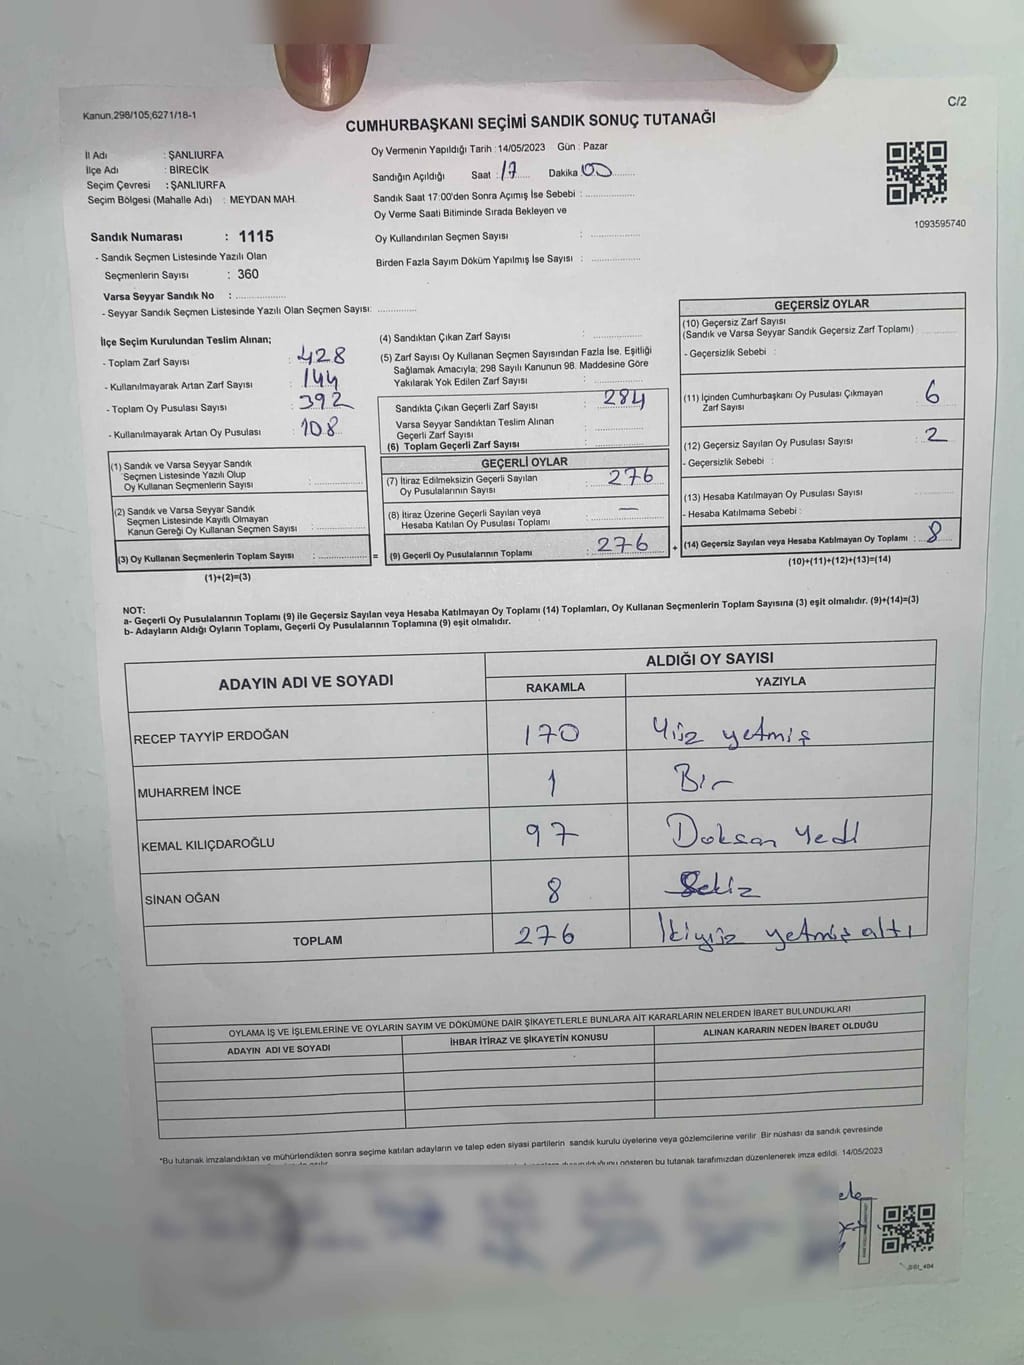 Kanun,298/105;6271/18-1
C/2
CUMHURBAŞKANI SEÇİMİ SANDIK SONUÇ TUTANAĞI
İl Adı : ŞANLIURFA
İlçe Adı : BİRECİK
Seçim Çevresi : ŞANLIURFA
Seçim Bölgesi (Mahalle Adı) : MEYDAN MAH.
Oy Vermenin Yapıldığı Tarih :14/05/2023 Gün : Pazar
Sandığın Açıldığı Saat : 17 Dakika 00
Sandık Saat 17:00'den Sonra Açımış İse Sebebi :
Oy Verme Saati Bitiminde Sırada Bekleyen ve
Oy Kullandırılan Seçmen Sayısı :
Birden Fazla Sayım Döküm Yapılmış İse Sayısı :
1093595740
Sandık Numarası : 1115
- Sandık Seçmen Listesinde Yazılı Olan
Seçmenlerin Sayısı : 360
Varsa Seyyar Sandık No :
- Seyyar Sandık Seçmen Listesinde Yazılı Olan Seçmen Sayısı:
İlçe Seçim Kurulundan Teslim Alınan;
- Toplam Zarf Sayısı : 428
- Kullanılmayarak Artan Zarf Sayısı : 144
- Toplam Oy Pusulası Sayısı : 392
- Kullanılmayarak Artan Oy Pusulası : 108
(1) Sandık ve Varsa Seyyar Sandık
Seçmen Listesinde Yazılı Olup
Oy Kullanan Seçmenlerin Sayısı :
(2) Sandık ve Varsa Seyyar Sandık
Seçmen Listesinde Kayıtlı Olmayan
Kanun Gereği Oy Kullanan Seçmen Sayısı :
(3) Oy Kullanan Seçmenlerin Toplam Sayısı : =
(1)+(2)=(3)
(4) Sandıktan Çıkan Zarf Sayısı :
(5) Zarf Sayısı Oy Kullanan Seçmen Sayısından Fazla İse, Eşitliği
Sağlamak Amacıyla; 298 Sayılı Kanunun 98. Maddesine Göre
Yakılarak Yok Edilen Zarf Sayısı :
Sandıkta Çıkan Geçerli Zarf Sayısı : 284
Varsa Seyyar Sandıktan Teslim Alınan
Geçerli Zarf Sayısı :
(6) Toplam Geçerli Zarf Sayısı :
GEÇERLİ OYLAR
(7) İtiraz Edilmeksizin Geçerli Sayılan
Oy Pusulalarının Sayısı : 276
(8) İtiraz Üzerine Geçerli Sayılan veya
Hesaba Katılan Oy Pusulası Toplamı : —
(9) Geçerli Oy Pusulalarının Toplamı : 276 +
GEÇERSİZ OYLAR
(10) Geçersiz Zarf Sayısı
(Sandık ve Varsa Seyyar Sandık Geçersiz Zarf Toplamı) :
- Geçersizlik Sebebi :
(11) İçinden Cumhurbaşkanı Oy Pusulası Çıkmayan
Zarf Sayısı : 6
(12) Geçersiz Sayılan Oy Pusulası Sayısı : 2
- Geçersizlik Sebebi :
(13) Hesaba Katılmayan Oy Pusulası Sayısı
- Hesaba Katılmama Sebebi :
(14) Geçersiz Sayılan veya Hesaba Katılmayan Oy Toplamı : 8
(10)+(11)+(12)+(13)=(14)
NOT:
a- Geçerli Oy Pusulalarının Toplamı (9) ile Geçersiz Sayılan veya Hesaba Katılmayan Oy Toplamı (14) Toplamları, Oy Kullanan Seçmenlerin Toplam Sayısına (3) eşit olmalıdır. (9)+(14)=(3)
b- Adayların Aldığı Oyların Toplamı, Geçerli Oy Pusulalarının Toplamına (9) eşit olmalıdır.
ADAYIN ADI VE SOYADI
ALDIĞI OY SAYISI
RAKAMLA YAZIYLA
RECEP TAYYİP ERDOĞAN 170 Yüz yetmiş
MUHARREM İNCE 1 Bir
KEMAL KILIÇDAROĞLU 97 Doksan Yedi
SİNAN OĞAN 8 Sekiz
TOPLAM 276 İkiyüz yetmiş altı
OYLAMA İŞ VE İŞLEMLERİNE VE OYLARIN SAYIM VE DÖKÜMÜNE DAİR ŞİKAYETLERLE BUNLARA AİT KARARLARIN NELERDEN İBARET BULUNDUKLARI
ADAYIN ADI VE SOYADI İHBAR İTİRAZ VE ŞİKAYETİN KONUSU ALINAN KARARIN NEDEN İBARET OLDUĞU
*Bu tutanak imzalandıktan ve mühürlendikten sonra seçime katılan adayların ve talep eden siyasi partilerin sandık kurulu üyelerine veya gözlemcilerine verilir. Bir nüshası da sandık çevresinde
gösteren bu tutanak tarafımızdan düzenlenerek imza edildi. 14/05/2023